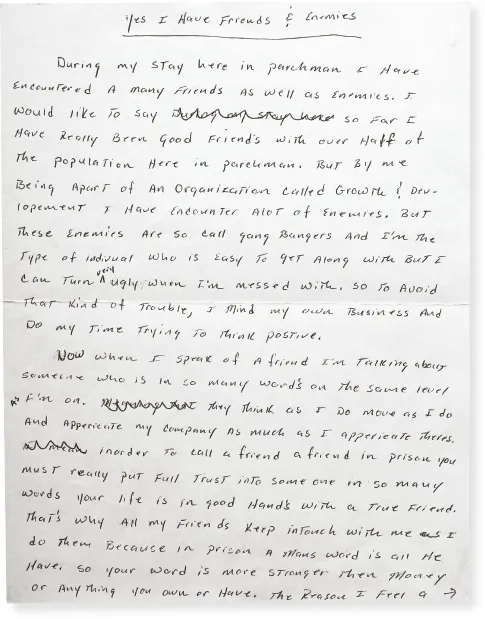 Yes I Have Friends & Enemies
During my stay here in parchman I Have
Encountered A many Friends As well as Enemies. I
would like To say so Far I
Have Really Been Good Friend's with over Haff of
the population Here in parchman. But By me
Being Apart of An Organization called Growth & Dev-
lopement I Have Encounter Alot of Enemies. But
These Enemies Are so call gang Bangers And I'm the
Type of indivual who is Easy To get Along with But I
can Turn very ugly when I'm messed with. so To Avoid
That Kind of Trouble, I Mind my own Business And
Do my Time Trying To Think postive.
Now when I speak of A friend I'm Talking about
someone who is in so many word's on the same level
As I'm on. they Think as I Do move as I do
And Appericate my company As much as I appericate theres.
inorder To call a friend a friend in prison you
must really put Full Trust into some one in so many
words your life is in good Hand's with a True Friend.
That's why All my Friends Keep inTouch with me as I
do them Because in prison A Mans word is all He
Have. so your word is more stronger Then Money
or Any thing you own or Have. The Reason I Feel a →